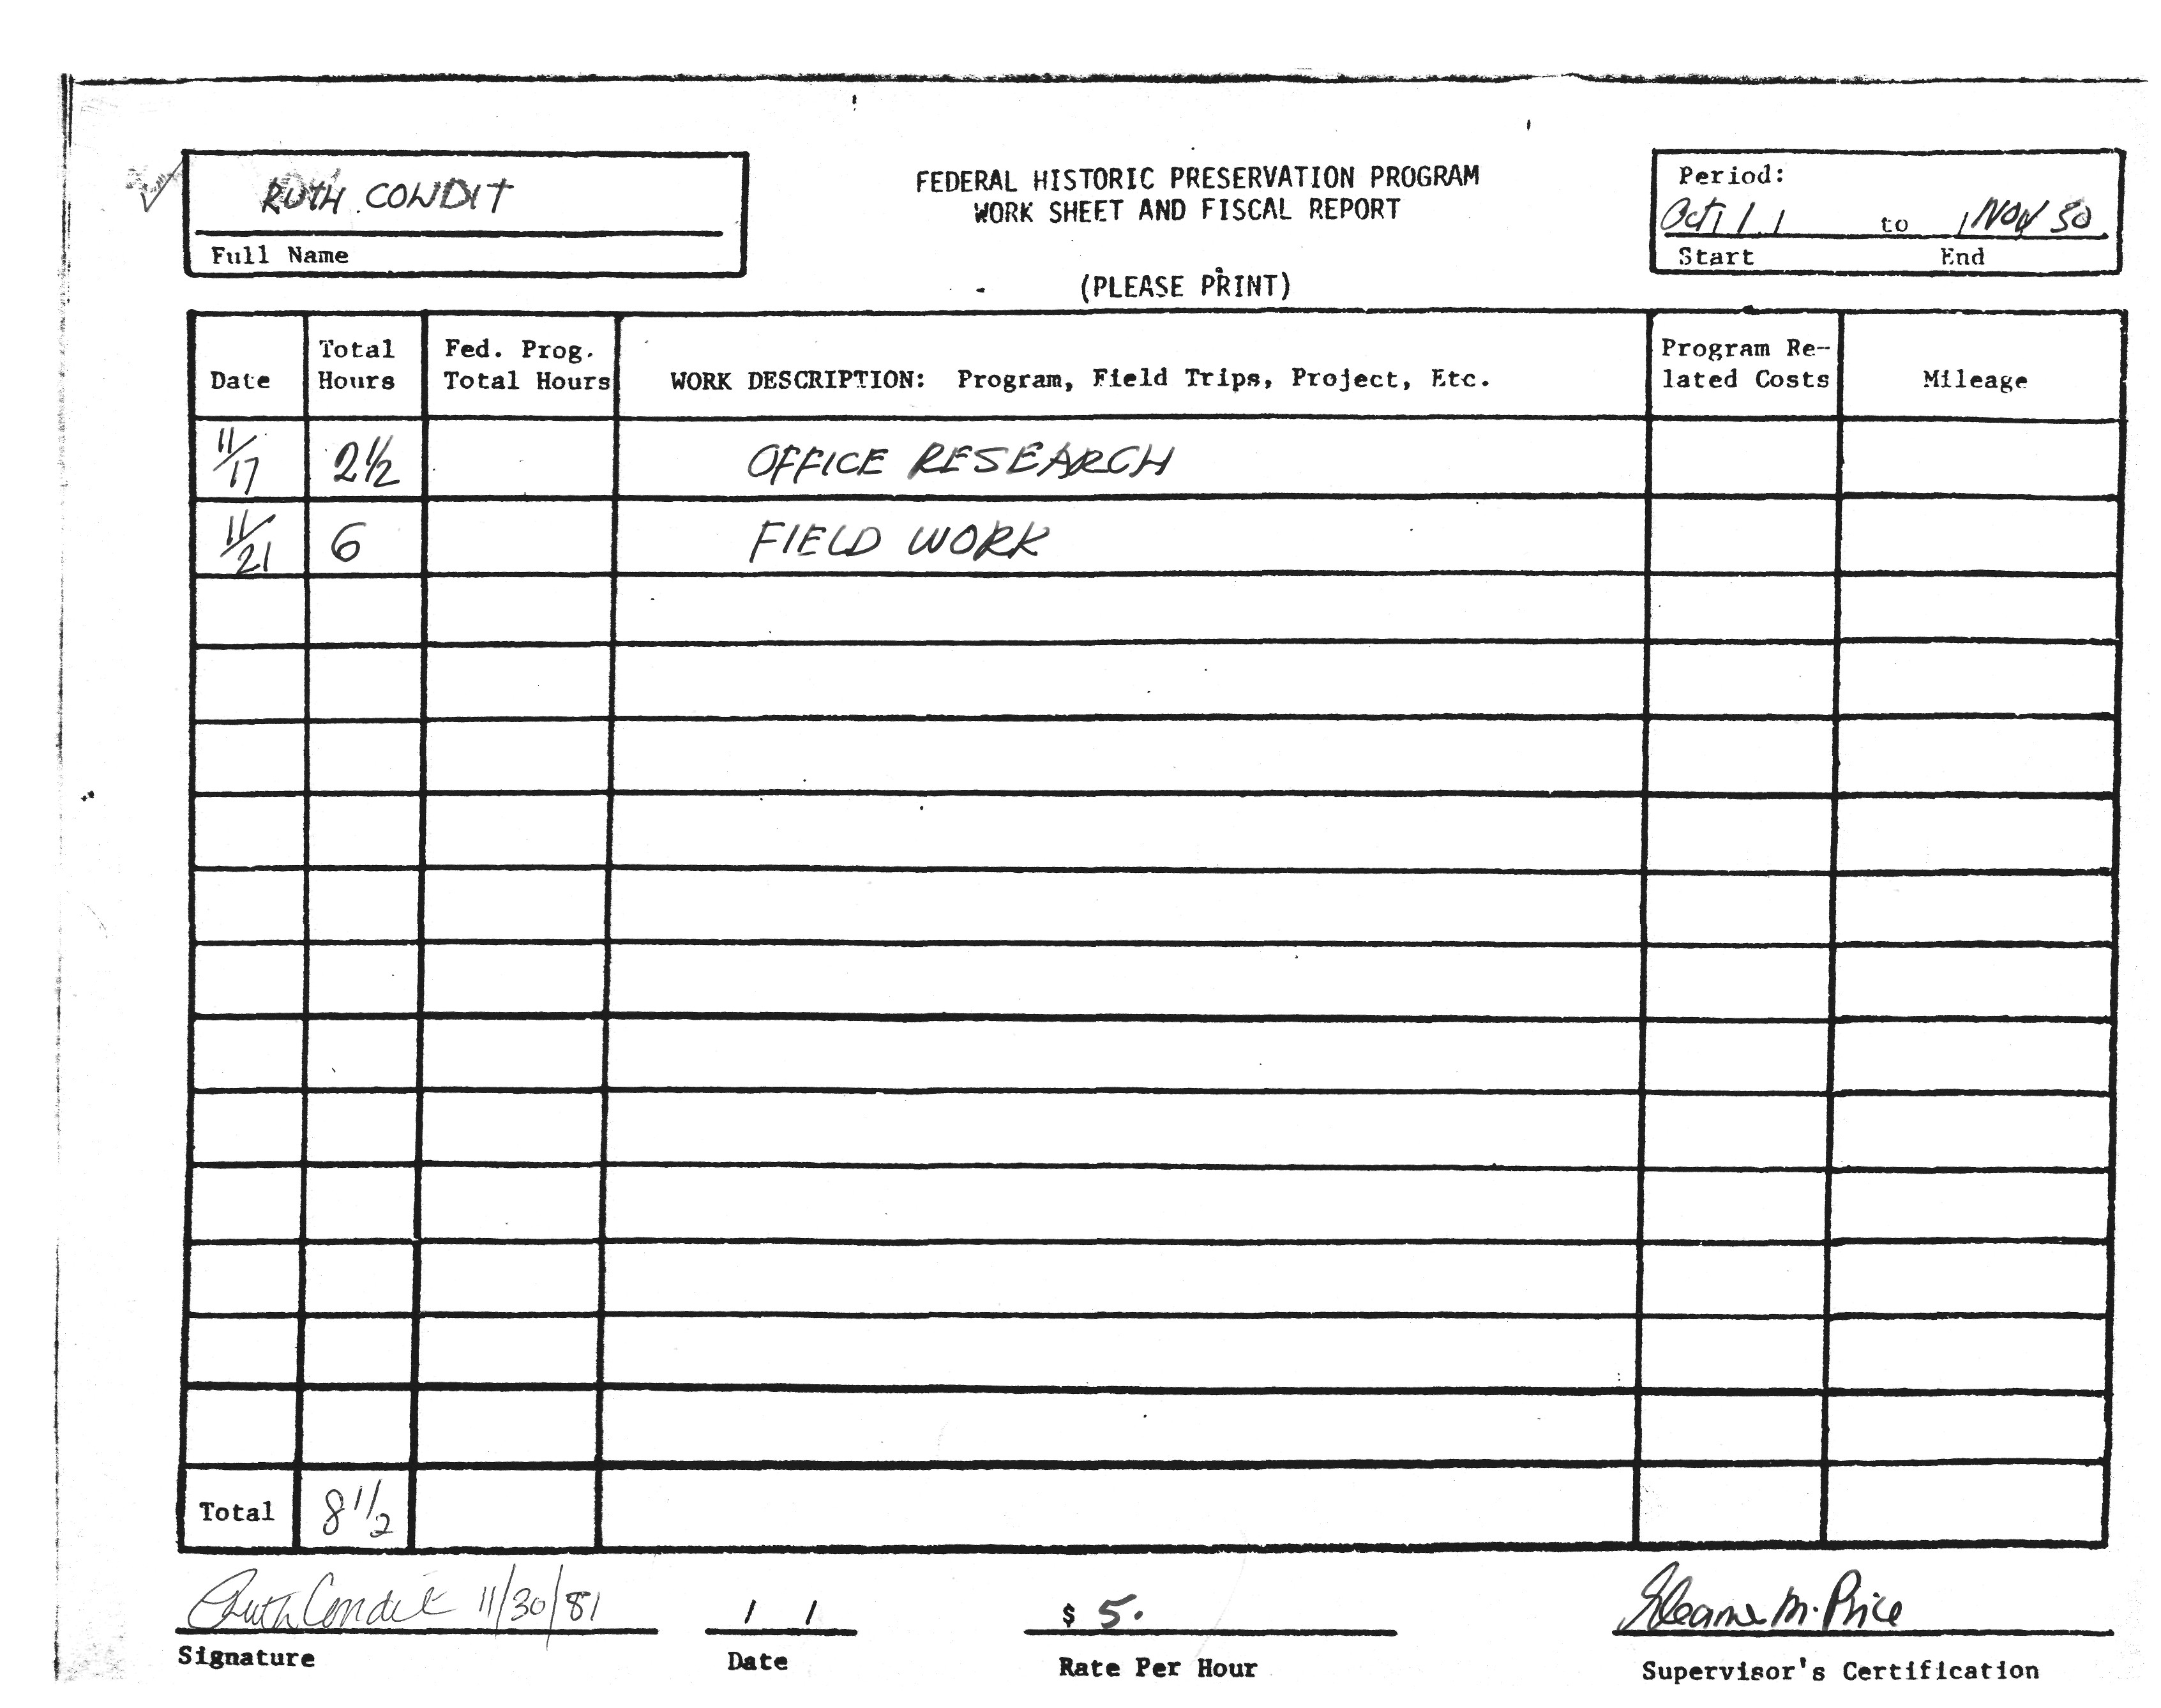 RUTH CONDIT
Full Name
FEDERAL HISTORIC PRESERVATION PROGRAM
WORK SHEET AND FISCAL REPORT
(PLEASE PRINT)
Period:
Oct / 1 to / Nov 30
Start End
Date
Total Hours
Fed. Prog. Total Hours
WORK DESCRIPTION: Program, Field Trips, Project, Etc.
Program Re-
lated Costs
Mileage
11/17 2 1/2 OFFICE RESEARCH
11/21 6 FIELD WORK
Total 8 1/2
Ruth Condit 11/30/81
/ /
$ 5.
Eleanor M. Price
Signature
Date
Rate Per Hour
Supervisor's Certification